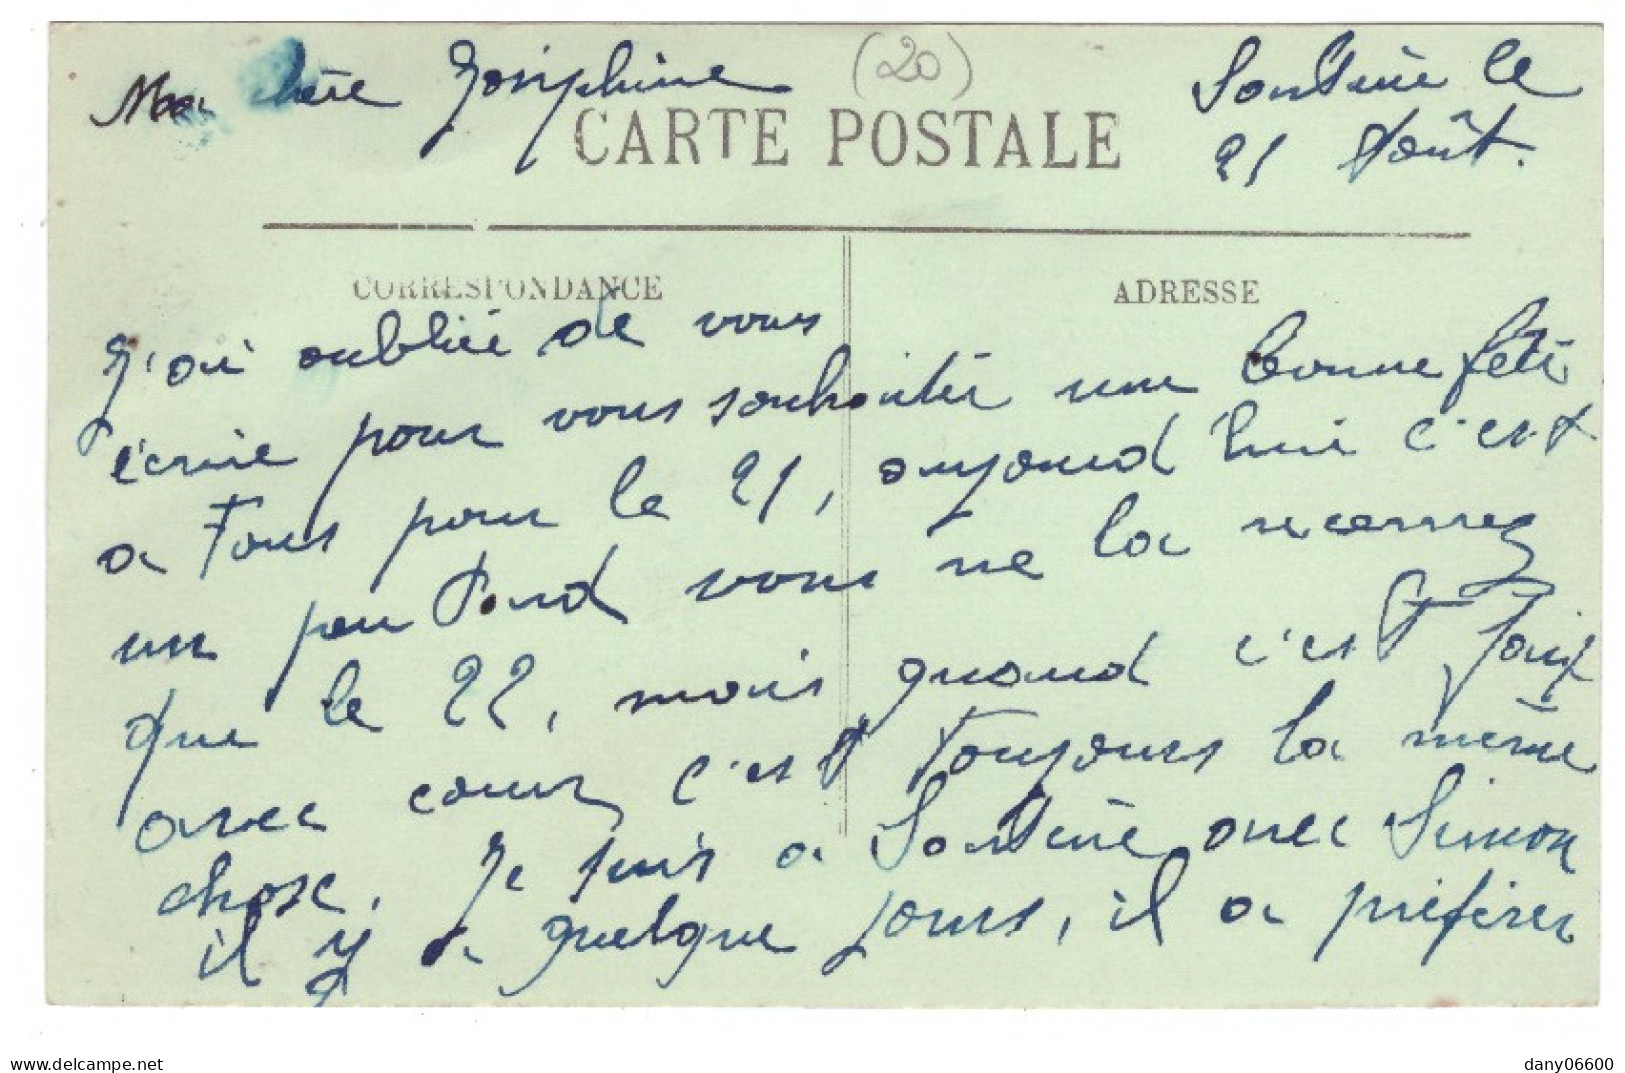 Ma chère Joséphine
(20)
Santène le
21 Août.
CARTE POSTALE
CORRESPONDANCE
ADRESSE
J'ai oubliée de vous
écrire pour vous souhaiter une bonne fête
a Tous pour le 21, aujourd'hui c'est
un peu Tard vous ne la recerrez
que le 22, mais quand c'est fait
avec cœur c'est Toujours la même
chose. Je suis a avec Simon
il y a quelque jours, il a préférer
dany06600